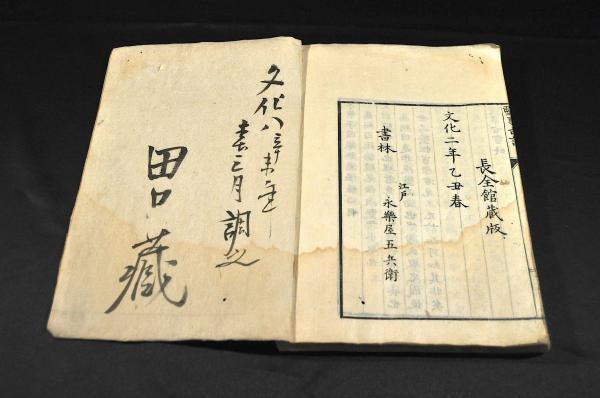 長全館蔵版
文化二年乙丑春
江戸
書林 永樂屋五兵衛
文化八辛未年
春三月 調之
田口蔵